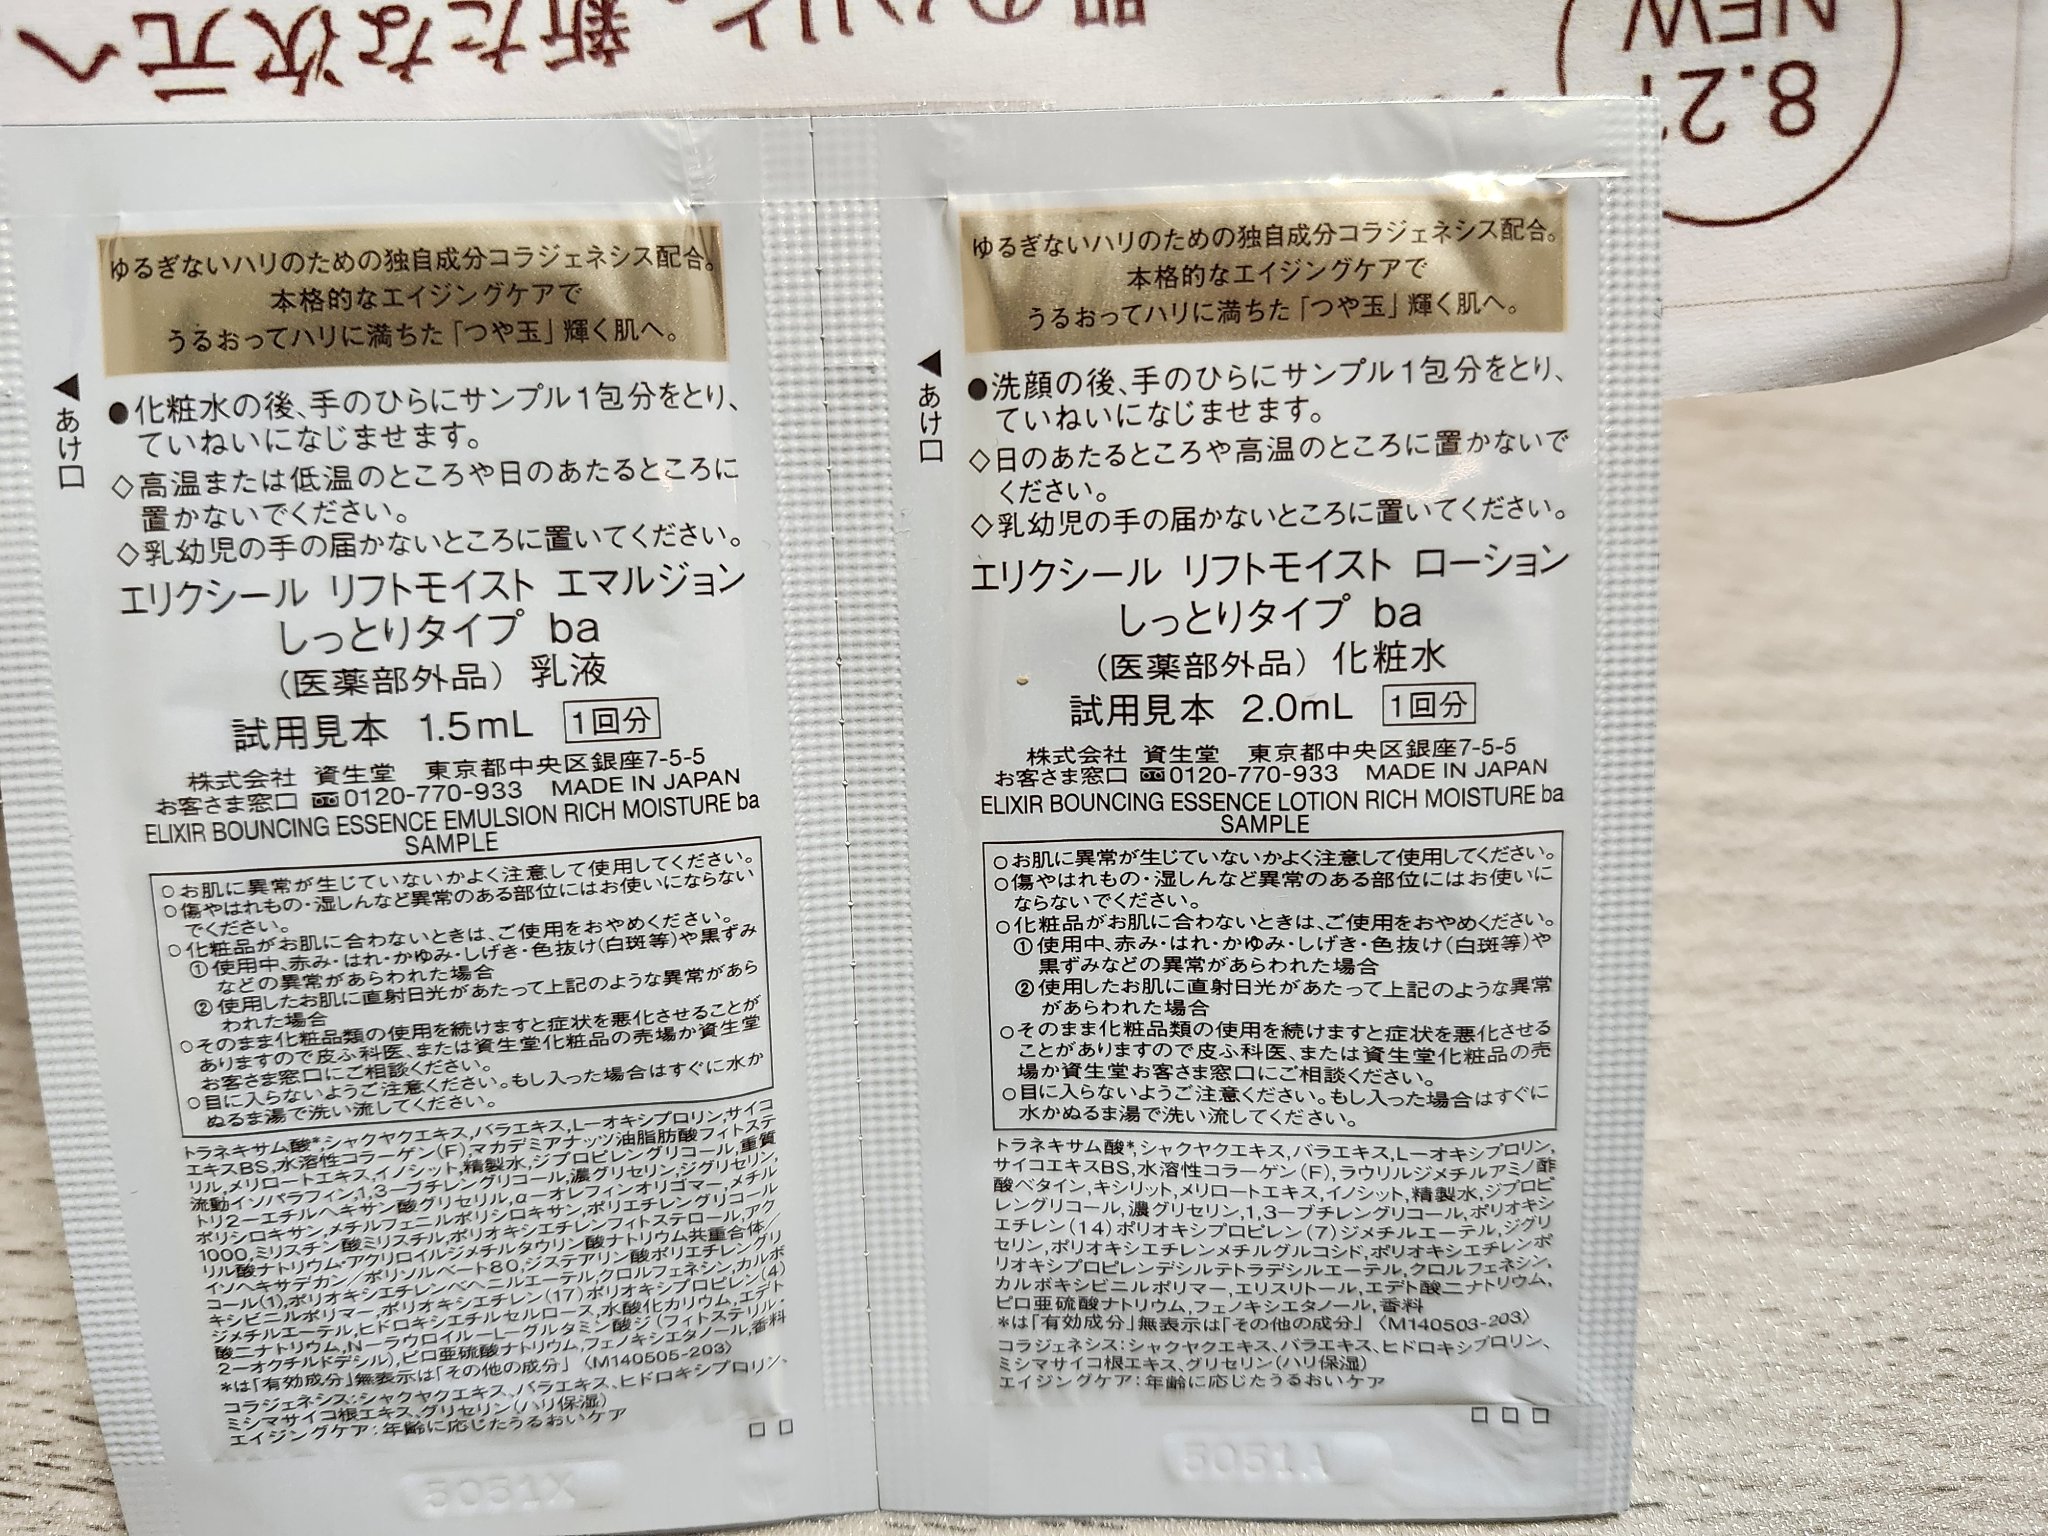 肌のハリと、新たな次元へ
NEW
8.2
ゆるぎないハリのための独自成分コラジェネシス配合。
本格的なエイジングケアで
うるおってハリに満ちた「つや玉」輝く肌へ。
◀あけ口
●化粧水の後、手のひらにサンプル1包分をとり、
ていねいになじませます。
◇高温または低温のところや日のあたるところに
置かないでください。
◇乳幼児の手の届かないところに置いてください。
エリクシール リフトモイスト エマルジョン
しっとりタイプ ba
（医薬部外品） 乳液
試用見本 1.5mL 1回分
株式会社 資生堂 東京都中央区銀座7-5-5
お客さま窓口 0120-770-933 MADE IN JAPAN
ELIXIR BOUNCING ESSENCE EMULSION RICH MOISTURE ba
SAMPLE
○お肌に異常が生じていないかよく注意して使用してください。
○傷やはれもの・湿しんなど異常のある部位にはお使いにならない
でください。
○化粧品がお肌に合わないときは、ご使用をおやめください。
①使用中、赤み・はれ・かゆみ・しげき・色抜け(白斑等)や黒ずみ
などの異常があらわれた場合
②使用したお肌に直射日光があたって上記のような異常があら
われた場合
○そのまま化粧品類の使用を続けますと症状を悪化させることが
ありますので皮ふ科医、または資生堂化粧品の売場か資生堂
お客さま窓口にご相談ください。
○目に入らないようご注意ください。もし入った場合はすぐに水か
ぬるま湯で洗い流してください。
トラネキサム酸*,シャクヤクエキス,バラエキス,L－オキシプロリン,サイコ
エキスBS,水溶性コラーゲン(F),マカデミアナッツ油脂肪酸フィトステ
リル,メリロートエキス,イノシット,精製水,ジプロピレングリコール,重質
流動イソパラフィン,1,3－ブチレングリコール,濃グリセリン,ジグリセリン,
トリ2－エチルヘキサン酸グリセリル,α－オレフィンオリゴマー,メチル
ポリシロキサン,メチルフェニルポリシロキサン,ポリエチレングリコール
1000,ミリスチン酸ミリスチル,ポリオキシエチレンフィトステロール,アク
リル酸ナトリウム・アクリロイルジメチルタウリン酸ナトリウム共重合体／
イソヘキサデカン／ポリソルベート80,ジステアリン酸ポリエチレングリ
コール(1),ポリオキシエチレンベヘニルエーテル,クロルフェネシン,カルボ
キシビニルポリマー,ポリオキシエチレン(17)ポリオキシプロピレン(4)
ジメチルエーテル,ヒドロキシエチルセルロース,水酸化カリウム,エデト
酸二ナトリウム,N－ラウロイル－L－グルタミン酸ジ(フィトステリル・
2－オクチルドデシル),ピロ亜硫酸ナトリウム,フェノキシエタノール,香料
*は「有効成分」無表示は「その他の成分」〈M140505-203〉
コラジェネシス：シャクヤクエキス、バラエキス、ヒドロキシプロリン、
ミシマサイコ根エキス、グリセリン(ハリ保湿)
エイジングケア：年齢に応じたうるおいケア
5051X
ゆるぎないハリのための独自成分コラジェネシス配合。
本格的なエイジングケアで
うるおってハリに満ちた「つや玉」輝く肌へ。
◀あけ口
●洗顔の後、手のひらにサンプル1包分をとり、
ていねいになじませます。
◇日のあたるところや高温のところに置かないで
ください。
◇乳幼児の手の届かないところに置いてください。
エリクシール リフトモイスト ローション
しっとりタイプ ba
（医薬部外品） 化粧水
試用見本 2.0mL 1回分
株式会社 資生堂 東京都中央区銀座7-5-5
お客さま窓口 0120-770-933 MADE IN JAPAN
ELIXIR BOUNCING ESSENCE LOTION RICH MOISTURE ba
SAMPLE
○お肌に異常が生じていないかよく注意して使用してください。
○傷やはれもの・湿しんなど異常のある部位にはお使いに
ならないでください。
○化粧品がお肌に合わないときは、ご使用をおやめください。
①使用中、赤み・はれ・かゆみ・しげき・色抜け(白斑等)や
黒ずみなどの異常があらわれた場合
②使用したお肌に直射日光があたって上記のような異常
があらわれた場合
○そのまま化粧品類の使用を続けますと症状を悪化させる
ことがありますので皮ふ科医、または資生堂化粧品の売
場か資生堂お客さま窓口にご相談ください。
○目に入らないようご注意ください。もし入った場合はすぐに
水かぬるま湯で洗い流してください。
トラネキサム酸*,シャクヤクエキス,バラエキス,L－オキシプロリン,
サイコエキスBS,水溶性コラーゲン(F),ラウリルジメチルアミノ酢
酸ベタイン,キシリット,メリロートエキス,イノシット,精製水,ジプロピ
レングリコール,濃グリセリン,1,3－ブチレングリコール,ポリオキシ
エチレン(14)ポリオキシプロピレン(7)ジメチルエーテル,ジグリ
セリン,ポリオキシエチレンメチルグルコシド,ポリオキシエチレンポ
リオキシプロピレンデシルテトラデシルエーテル,クロルフェネシン,
カルボキシビニルポリマー,エリスリトール,エデト酸二ナトリウム,
ピロ亜硫酸ナトリウム,フェノキシエタノール,香料
*は「有効成分」無表示は「その他の成分」〈M140503-203〉
コラジェネシス：シャクヤクエキス、バラエキス、ヒドロキシプロリン、
ミシマサイコ根エキス、グリセリン(ハリ保湿)
エイジングケア：年齢に応じたうるおいケア
5051A